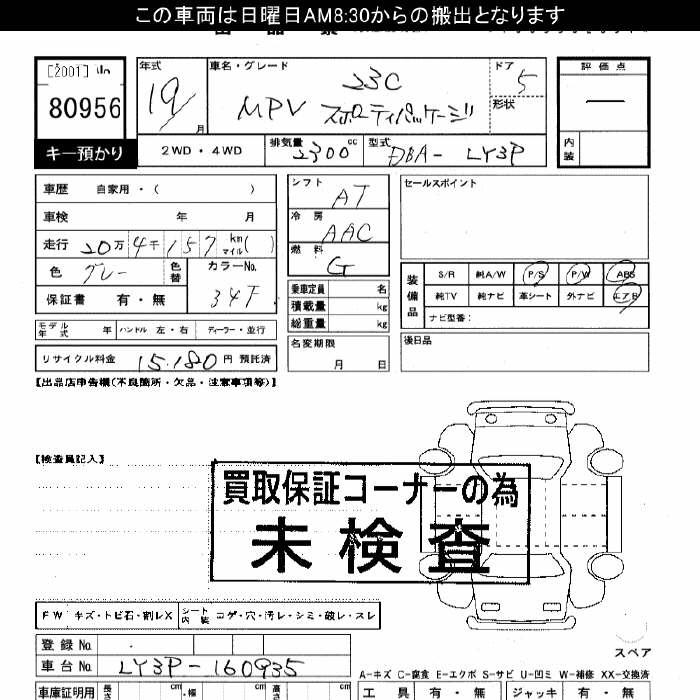 この車両は日曜日AM8:30からの搬出となります
[2001]
80956
キー預かり
年式 19 月
車名・グレード 23C
MPV スポーティパッケージ
ドア 5
形状
評価点 ー
内装
2WD・4WD
排気量 2300 cc
型式 DBA- LY3P
車歴 自家用・( )
車検 年 月
走行 20万4千157 km マイル( )
色 グレー 色替 カラーNo. 34F
保証書 有・無
シフト AT
冷房 AAC
燃料 G
セールスポイント
乗車定員 名
積載量 kg
総重量 kg
装備品
S/R 純A/W P/S P/W ABS
純TV 純ナビ 革シート 外ナビ エアB
ナビ型番:
モデル年式 年 ハンドル 左・右 ディーラー・並行
名変期限
月 日
後日品
リサイクル料金 15,180 円 預託済
【出品店申告欄(不良箇所・欠品・注意事項等)】
【検査員記入】
買取保証コーナーの為
未検査
FW キズ・トビ石・割レX シート内装 コゲ・穴・汚レ・シミ・破レ・スレ
スペア
登録No.
車台No. LY3P-160935
A-キズ C-腐食 E-エクボ S-サビ U-凹ミ W-補修 XX-交換済
車庫証明用 長さ cm 幅 cm 高さ cm
工具 有・無 ジャッキ 有・無